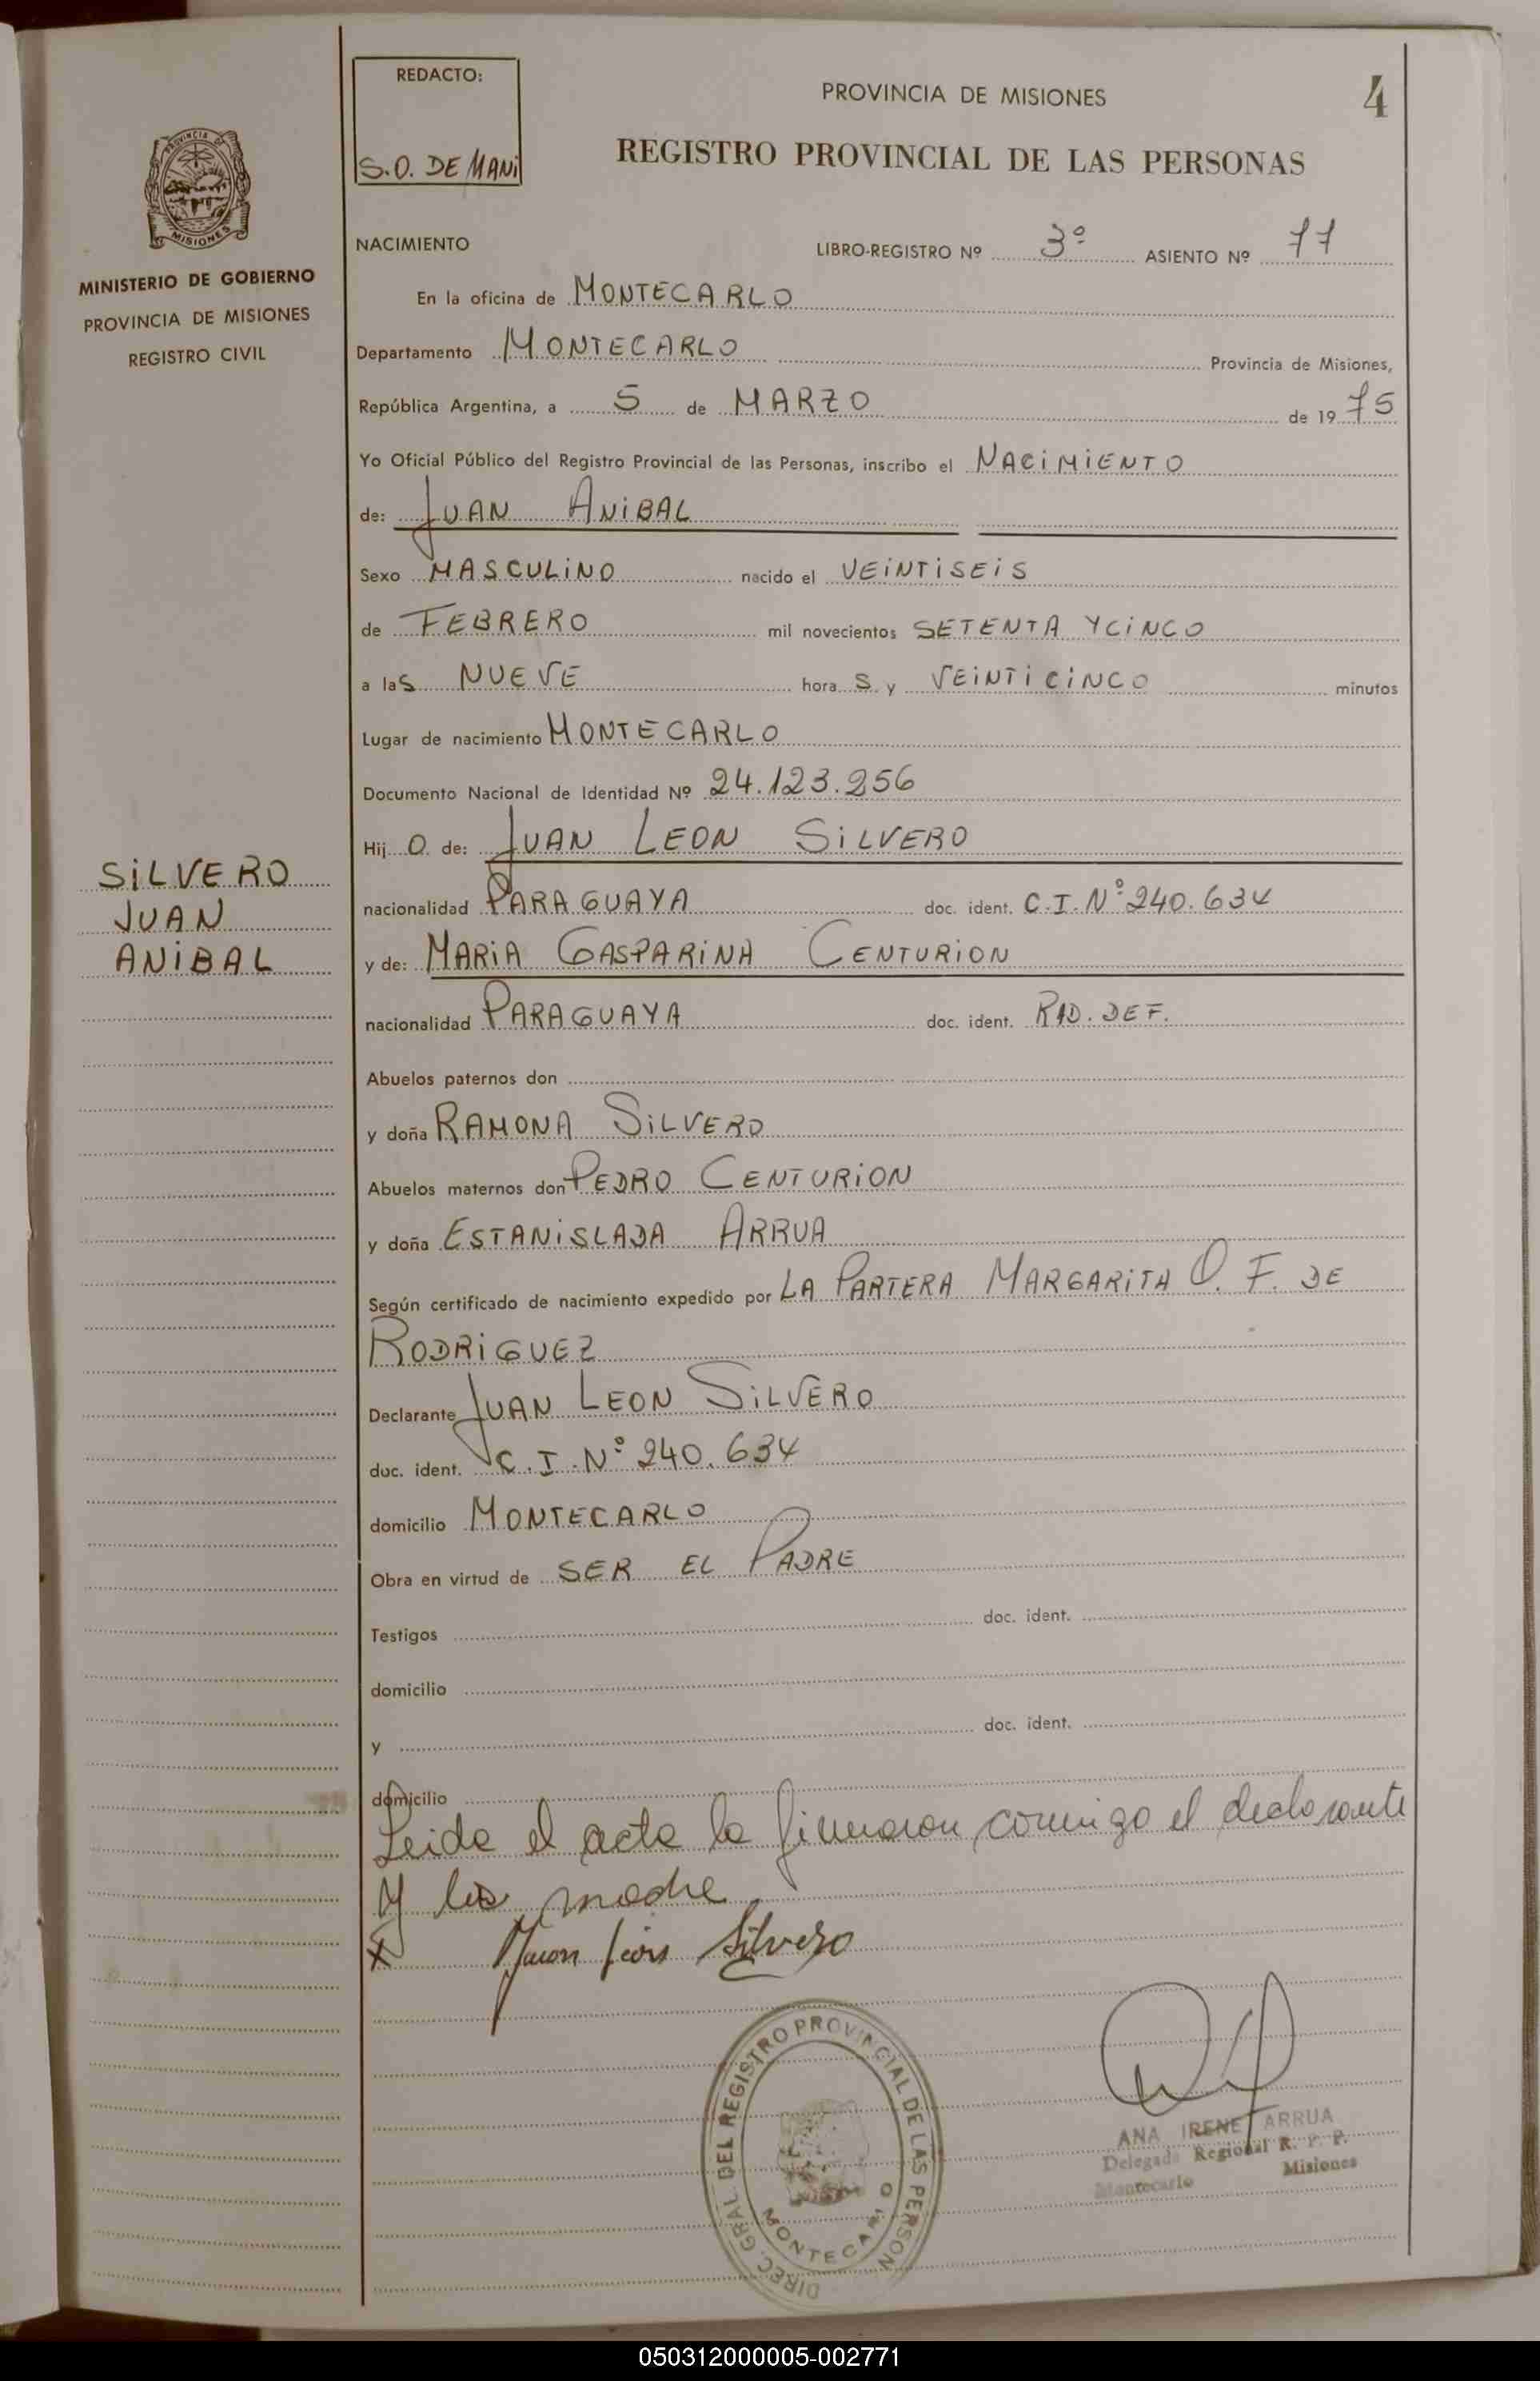 REDACTO:
S.O. DE MANI
PROVINCIA DE MISIONES
4
REGISTRO PROVINCIAL DE LAS PERSONAS
PROVINCIA DE
MISIONES
MINISTERIO DE GOBIERNO
PROVINCIA DE MISIONES
REGISTRO CIVIL
NACIMIENTO
LIBRO-REGISTRO Nº 3º ASIENTO Nº 77
En la oficina de MONTECARLO
Departamento MONTECARLO Provincia de Misiones,
República Argentina, a 5 de MARZO de 1975
Yo Oficial Público del Registro Provincial de las Personas, inscribo el NACIMIENTO
de: JUAN ANIBAL
Sexo MASCULINO nacido el VEINTISEIS
de FEBRERO mil novecientos SETENTA Y CINCO
a las NUEVE hora S y VEINTICINCO minutos
Lugar de nacimiento MONTECARLO
Documento Nacional de Identidad Nº 24.123.256
Hij O de: JUAN LEON SILVERO
SILVERO
JUAN
ANIBAL
nacionalidad PARAGUAYA doc. ident. C.I.Nº 240.634
y de: MARIA GASPARINA CENTURION
nacionalidad PARAGUAYA doc. ident. RAD. DEF.
Abuelos paternos don
y doña RAMONA SILVERO
Abuelos maternos don PEDRO CENTURION
y doña ESTANISLADA ARRUA
Según certificado de nacimiento expedido por LA PARTERA MARGARITA O. F. DE
RODRIGUEZ
Declarante JUAN LEON SILVERO
doc. ident. C.I.Nº 240.634
domicilio MONTECARLO
Obra en virtud de SER EL PADRE
Testigos doc. ident.
domicilio
y doc. ident.
domicilio
Leida el acta la firmaron conmigo el declarante
y la madre
X Juan León Silvero
DIREC. GRAL. DEL REGISTRO PROVINCIAL DE LAS PERSON
MONTECARLO
ANA IRENE ARRUA
Delegada Regional R. P. P.
Montecarlo Misiones
050312000005-002771